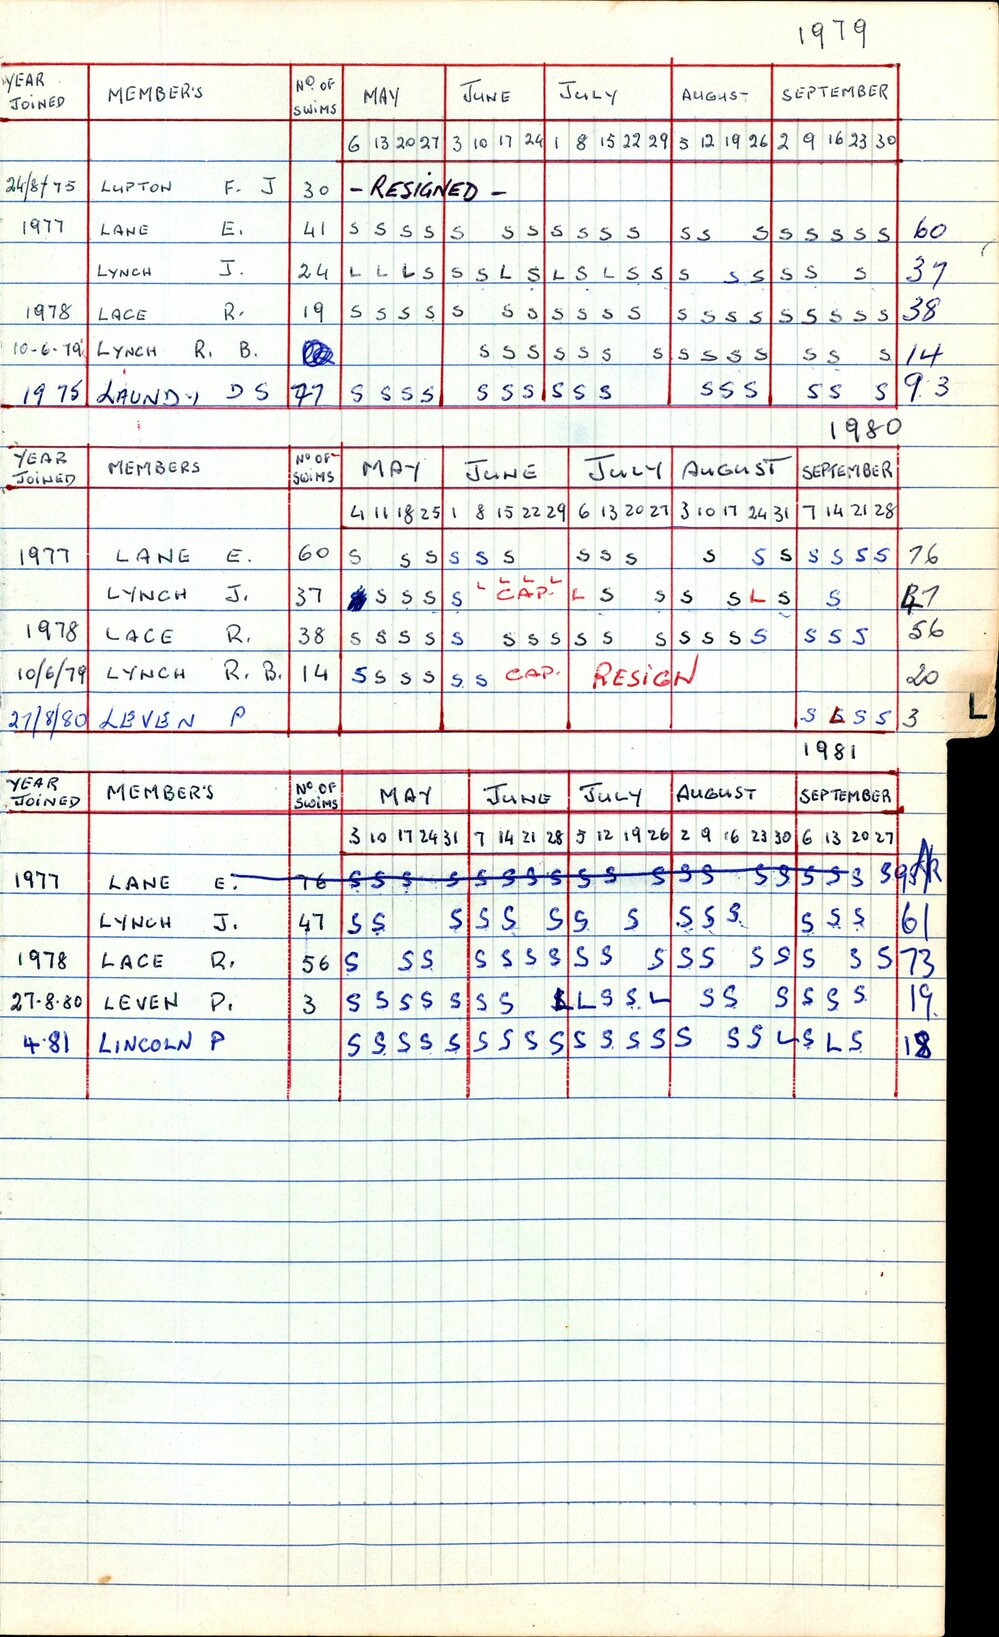 1979
YEAR JOINED MEMBER'S No. OF SWIMS MAY JUNE JULY AUGUST SEPTEMBER
6 13 20 27 3 10 17 24 1 8 15 22 29 5 12 19 26 2 9 16 23 30
24/8/75 LUPTON F. J 30 - RESIGNED -
1977 LANE E. 41 S S S S S S S S S S S S S S S S S S S 60
LYNCH J. 24 L L L S S S L S L S L S S S S S S S S 37
1978 LACE R. 19 S S S S S S S S S S S S S S S S S S S S 38
10-6-79 LYNCH R. B. S S S S S S S S S S S S S S 14
1975 LAUNDY D S 77 S S S S S S S S S S S S S S S S 93
1980
YEAR JOINED MEMBERS No OF SWIMS MAY JUNE JULY AUGUST SEPTEMBER
4 11 18 25 1 8 15 22 29 6 13 20 27 3 10 17 24 31 7 14 21 28
1977 LANE E. 60 S S S S S S S S S S S S S S S S 76
LYNCH J. 37 S S S S L L L L CAP. L S S S S L S S 47
1978 LACE R. 38 S S S S S S S S S S S S S S S S S S S 56
10/6/79 LYNCH R. B. 14 S S S S S S CAP. RESIGN 20
27/8/80 LEVEN P S L S S 3
L
1981
YEAR JOINED MEMBER'S No OF SWIMS MAY JUNE JULY AUGUST SEPTEMBER
3 10 17 24 31 7 14 21 28 5 12 19 26 2 9 16 23 30 6 13 20 27
1977 LANE E. 76 S S S S S S S S S S S S S S S S S S S 95
LYNCH J. 47 S S S S S S S S S S S S S S S 61
1978 LACE R. 56 S S S S S S S S S S S S S S S S S 73
27-8-80 LEVEN P. 3 S S S S S S S L L S S L S S S S S S 19
4-81 LINCOLN P S S S S S S S S S S S S S S S S L S L S 18